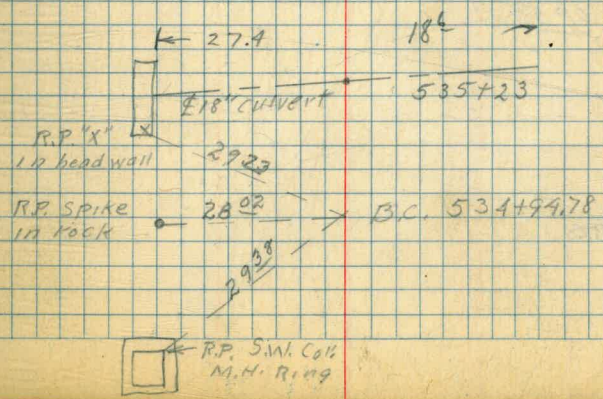 27.4
18⁶
℄ 18" culvert
535+23
R.P. "X"
in head wall
29²³
R.P. Spike
in rock
28⁰²
B.C. 534+94.78
29³⁸
R.P. S.W. Cor.
M.H. Ring